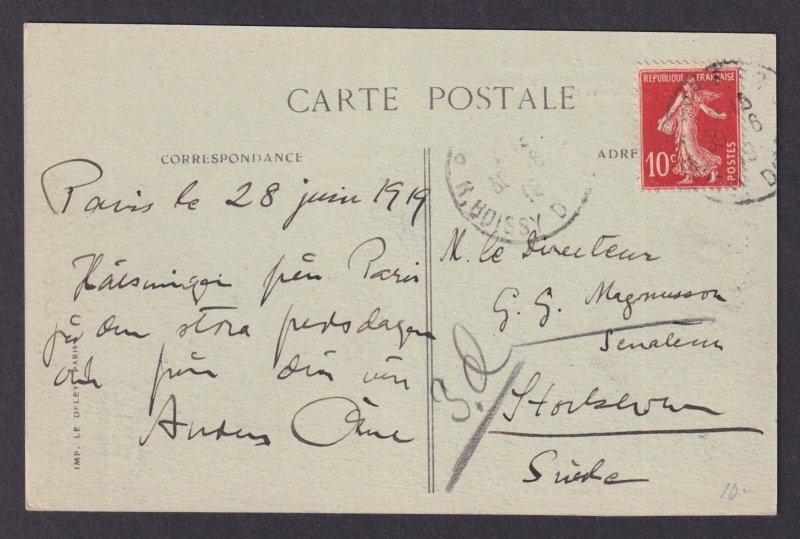 CARTE POSTALE
REPUBLIQUE FRANÇAISE
10c
POSTES
CORRESPONDANCE
ADRE
R. BOISSY D
Paris le 28 juin 1919
Hälsningar från Paris
på den stora fredsdagen
och från din vän
Anders
M. le Directeur
G. G. Magnusson
Stockholm
Suède
3.d
IMP. LE DELEY, PARIS
10